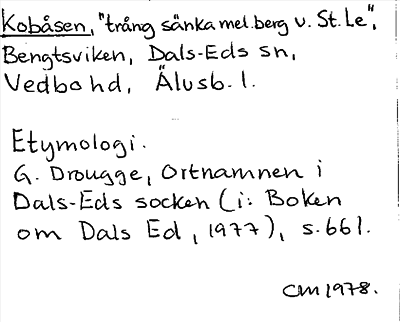 Kobåsen, "trång sänka mel. berg v. St. Le",
Bengtsviken, Dals-Eds sn,
Vedbo hd, Älvsb. l.
Etymologi.
G. Drougge, Ortnamnen i
Dals-Eds socken (i: Boken
om Dals Ed, 1977), s. 661.
CM 1978.